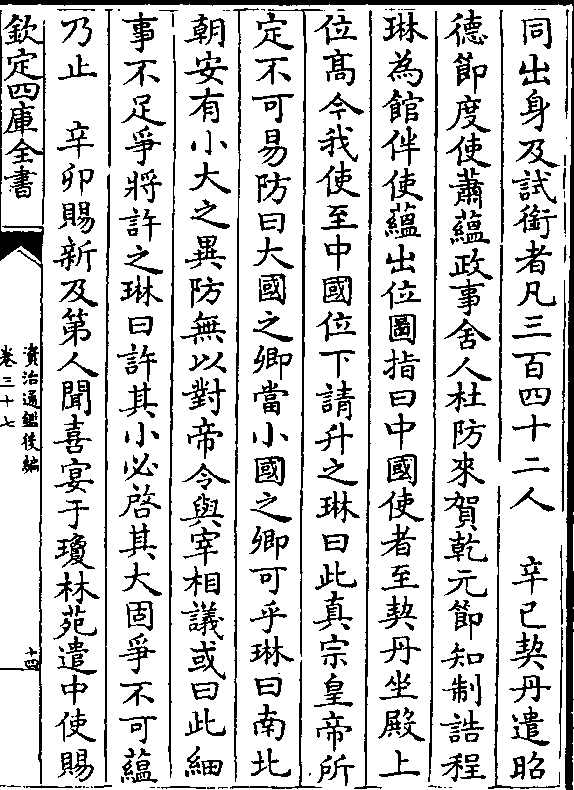 同出身及試銜者凡三百四十二人　辛巳契丹遣昭
德節度使蕭蘊政事舍人杜防來賀乾元節知制誥程
琳為館伴使蘊出位圖指曰中國使者至契丹坐殿上
位高今我使至中國位下請升之琳曰此真宗皇帝所
定不可易防曰大國之卿當小國之卿可乎琳曰南北
朝安有小大之異防無以對帝令與宰相議或曰此細
事不足爭將許之琳曰許其小必啓其大固爭不可蘊
乃止　辛卯賜新及第人聞喜宴于瓊林苑遣中使賜
欽定四庫全書
資治通鑑後編
卷三十七
十四